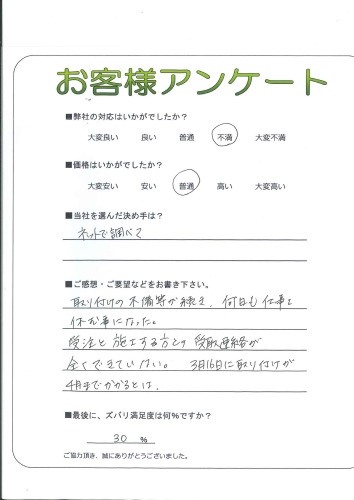 お客様アンケート
■弊社の対応はいかがでしたか?
大変良い 良い 普通 不満 大変不満
■価格はいかがでしたか?
大変安い 安い 普通 高い 大変高い
■当社を選んだ決め手は?
ネットで調べて
■ご感想・ご要望などをお書き下さい。
取り付けの不備等が続き、何日も仕事を
休む事になった。
受注と施工する方との受取連絡が
全くできていない。 3月16日に取り付けが
4月までかかるとは、
■最後に、ズバリ満足度は何%ですか?
30 %
ご協力頂き、誠にありがとうございました。